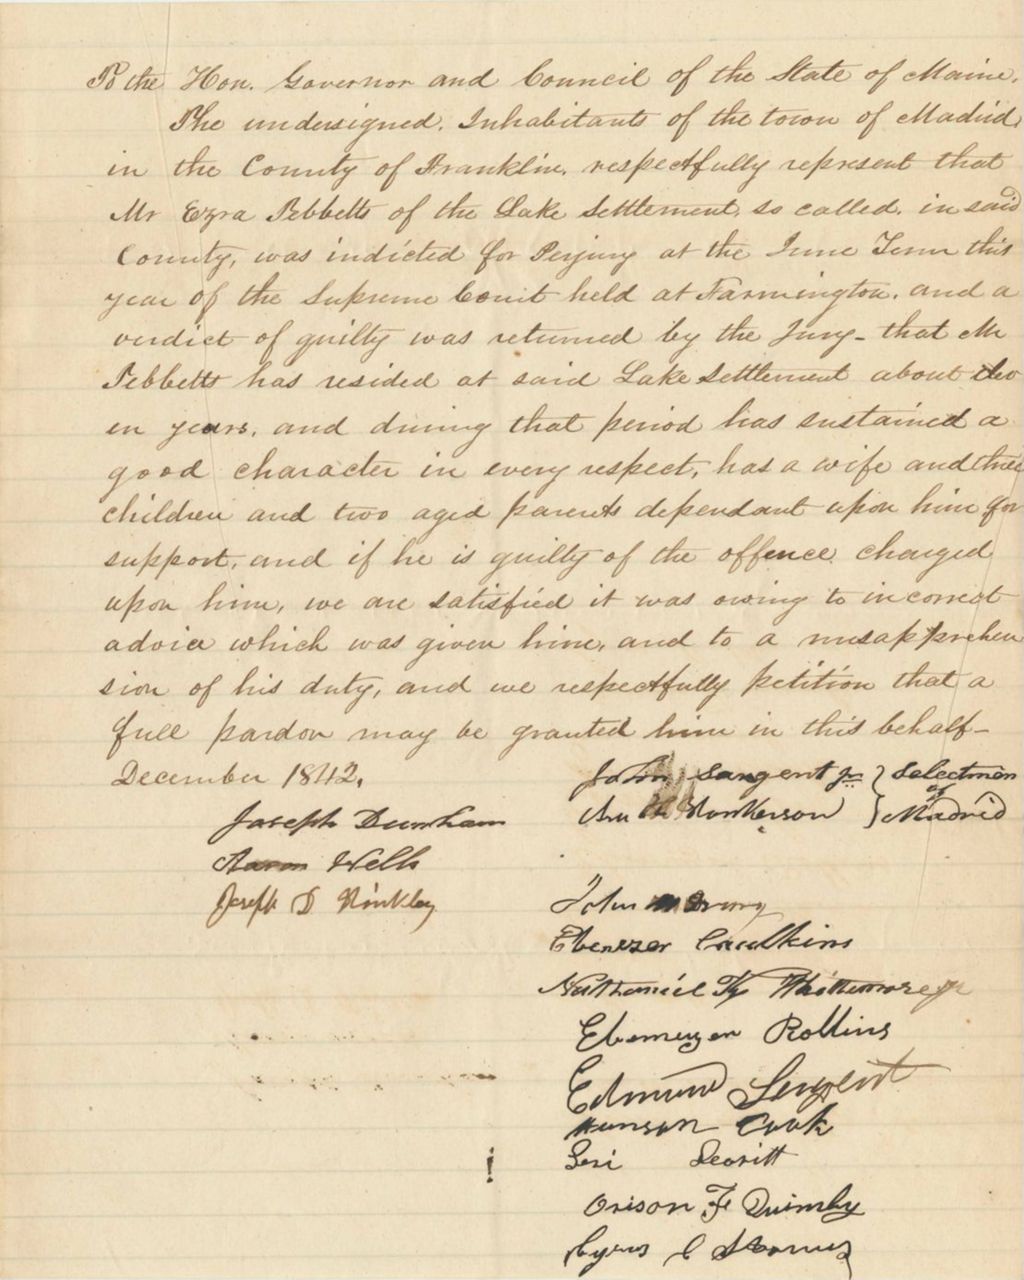 To the Hon. Governor and Council of the State of Maine.
The undersigned. Inhabitants of the town of Madrid,
in the County of Franklin. respectfully represent that
Mr Ezra Tebbetts of the Lake Settlement, so called. in said
County, was indicted for Perjury at the June Term this
year of the Supreme Court held at Farmington. and a
verdict of guilty was returned by the Jury - that Mr
Tebbetts has resided at said Lake Settlement about elev
en years, and during that period has sustained a
good character in every respect, has a wife and three
children and two aged parents dependant upon him for
support, and if he is guilty of the offence charged
upon him, we are satisfied it was owing to incorrect
advice which was given him, and to a misapprehen
sion of his duty, and we respectfully petition that a
full pardon may be granted him in this behalf -
December 1842.
John Sargent Jr } Selectmen
of
} Madrid
Joseph Dunham
Aaron Wells
Joseph D Hinkley
John
Ebenezer Caulkins
Nathaniel Whittemore jr
Ebenezer Rollins
Edmund Sargent
Hunson Cook
Levi Leavitt
Orison F Quimby
Cyrus C